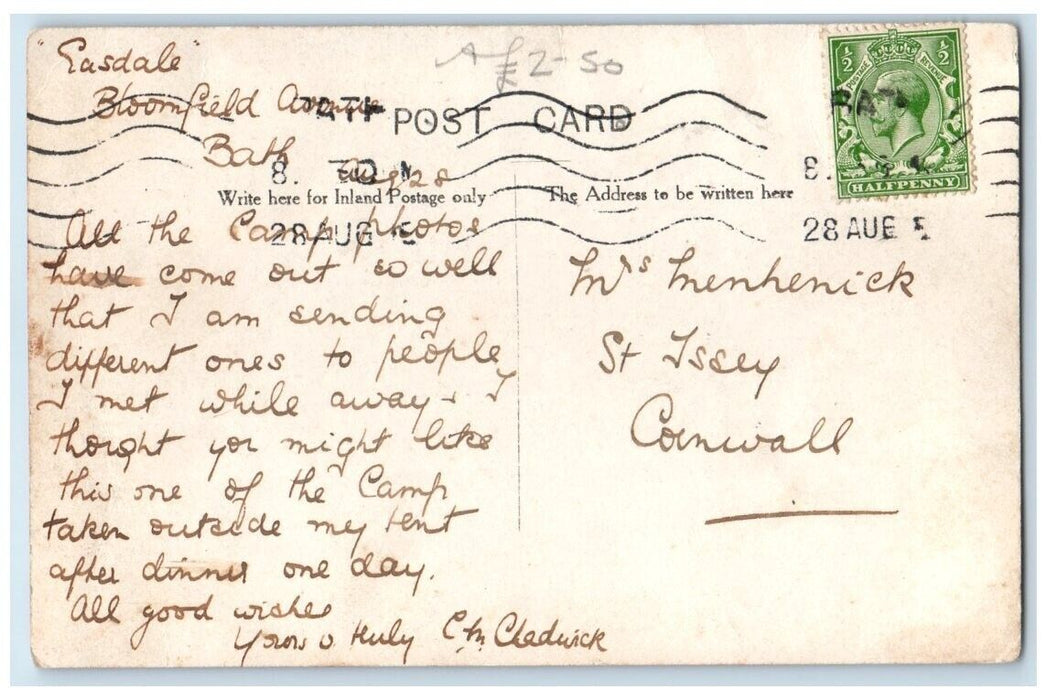 Easdale
Bloomfield Avenue
Bath
Aug 28
A £2-50
POST CARD
Write here for Inland Postage only
The Address to be written here
½ ½
POSTAGE REVENUE
HALFPENNY
BATH
8.
28 AUG
8.
28 AUG
All the Camp photos
have come out so well
that I am sending
different ones to people
I met while away & I
thought you might like
this one of the Camp
taken outside my tent
after dinner one day.
All good wishes
Yours v. truly C M Chadwick
Mrs Menhenick
St Issey
Cornwall